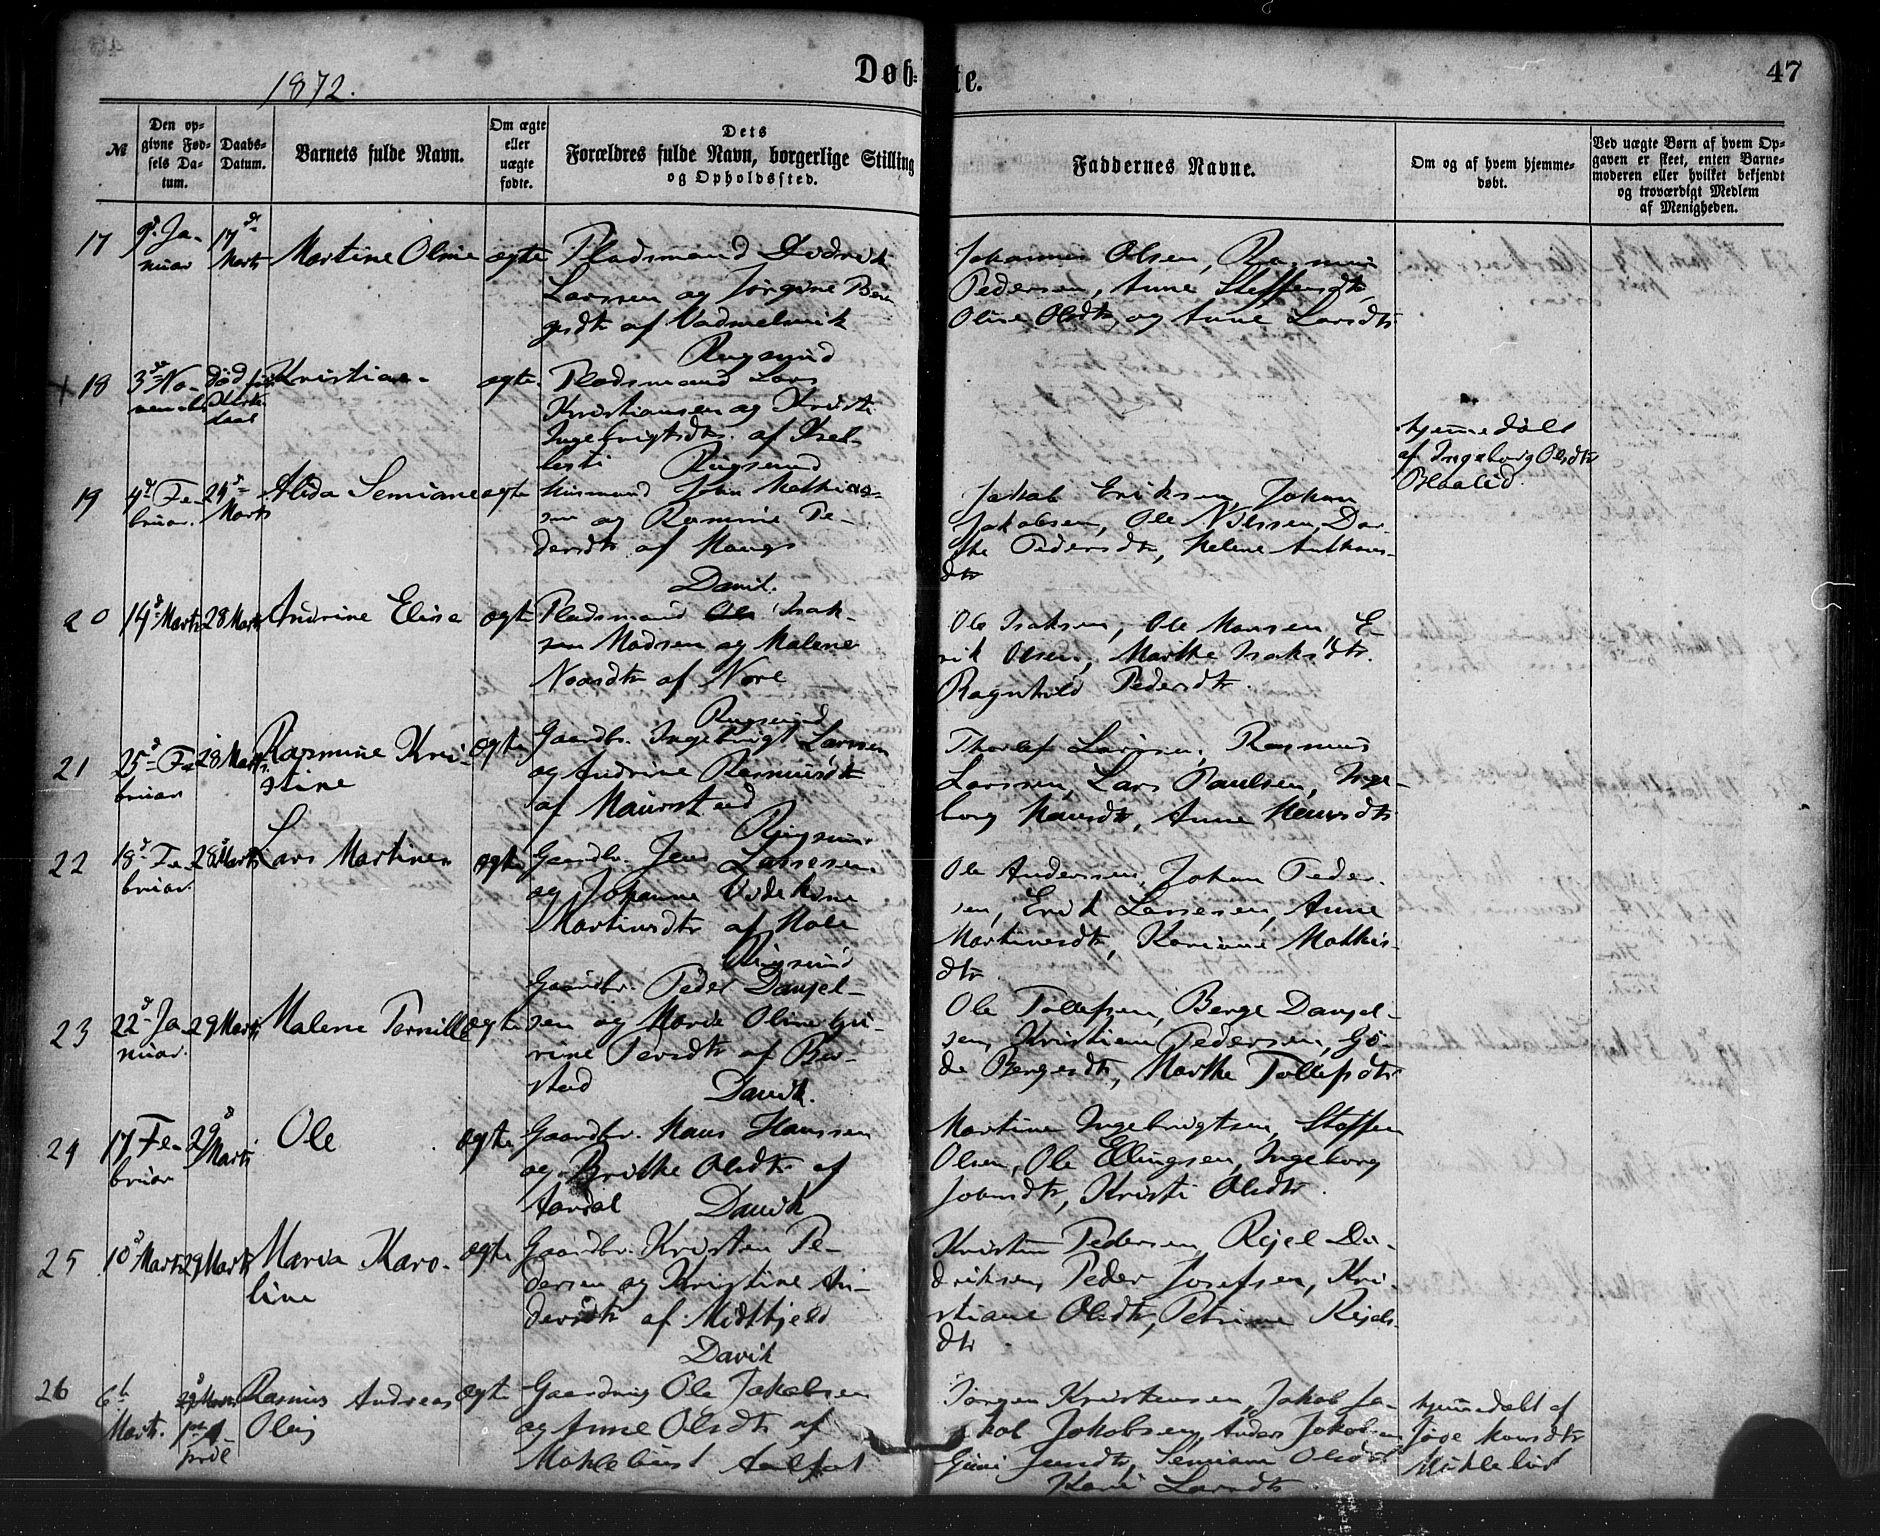 1872.
Døbte.
47
№
Den op-
givne Fød-
sels Da-
tum.
Daabs-
Datum.
Barnets fulde Navn.
Om ægte
eller
uægte
fødte.
Dets
Forældres fulde Navn, borgerlige Stilling
og Opholdssted.
Faddernes Navne.
Om og af hvem hjemme-
døbt.
Ved uægte Børn af hvem Op-
gaven er skeet, enten Barne-
moderen eller hvilket bekjendt
og troværdigt Medlem
af Menigheden.
17
9d Ja-
nuar
17d
Marts
Martine Oline
ægte
Pladsmand Didrik
Larssen og Jørgine Ber
gsdtr af Vadmelsvik
Rugsund
Johannes Olsen, Rasmus
Pedersen, Anne Steffensdtr,
Oline Olsdtr, og Anne Larsdtr
+ 18
3d No-
vemb.
død før
Daab
Kristian
ægte.
Pladsmand Lars
Kristiansen og Kristi
Ingebrigtsdtr. af
Rugsund
hjemmedøbt
af Ingeborg Olsdtr
Blaalid.
19
4d Fe-
bruar.
24d
Marts
Alida Semiane
ægte
Husmand John Mathias-
sen og Rasmine Pe-
dersdtr af Haugs
Davik.
Jakob Eriksen, Johan
Jakobsen, Ole Nilssen, Dor-
the Pedersdtr, Helene Anthons-
dtr
20
14d Marts
28 Marts
Andrine Elise
ægte
Pladsmand Isak-
sen Madsen og Malene
Noasdtr af Nore
Rugsund
Ole Isaksen, Ole Hansen E-
rik Olsen, Marthe Isaksdtr.
Ragnhild Pedersdtr.
21
25d Fe-
bruar
28 Marts
Rasmine Kri-
stine
ægte
Gaardbr. Ingebrigt Larssen
og Andrine Rasmusdtr
af Maurstad
Rugsund
Thorlef Larssen, Rasmus
Larssen, Lars Paulsen, Inge-
borg Hansdtr, Anne Hansdtr
22
18d Fe-
bruar.
28 Marts
Lars Martines
ægte
Gaardbr. Jens Lassesen
og Johanne Videkine
Martinsdtr af Hole
Rugsund
Ole Andersen, Johan Peder-
sen, Erik Lassesen, Anne
Martinusdtr, Karianne Mathis-
dtr
23
22d Ja-
nuar.
29 Marts
Malene Pernille
ægte
Gaardbr. Peder Danjel-
sen og Marie Oline Gu-
rine Persdtr af Ber-
stad
Davik.
Ole Tollefsen, Berge Danjel-
sen, Kristian Pedersen, Gø-
de Bergesdtr, Marthe Tollefsdtr
24
17 Fe-
bruar
29d
Marts
Ole
ægte
Gaardbr. Hans Hanssen
og Brithe Olsdtr af
Aardal Davik
Martinus Ingebrigtsen, Steffen
Olsen, Ole Ellingsen, Ingeborg
Johnsdtr, Kristi Olsdtr.
25
10d Marts
29 Marts
Maria Karo-
line
ægte
Gaardbr. Kristen Pe-
dersen og Kristine An-
dersdtr af Midthjeld
Davik
Kristen Pedersen, Rejel Di-
driksen, Peder Josefsen, Kri-
stiane Olsdtr, Petrine Rejels-
dtr
26
6t
Marts.
29d Marts
Rasmus Andreas
Olai
ægte
Gaardmd Ole Jakobsen
og Anne Olsdtr af
Mykkebust Aalfot
Jørgen Kristensen, Jakob Ja-
kob Jakobsen, Anders Jakobsen
Guni Jensdtr, Semiane Olsdtr
Kari Larsdtr
hjemmedøbt af
Hansdtr
Myklebust